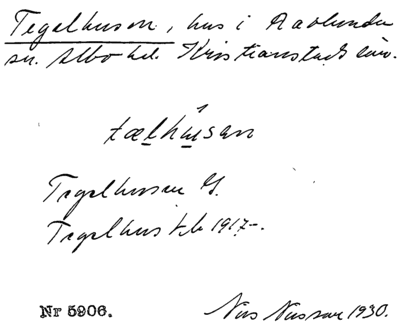 Tegelhusen, hus i Ravlunda
sn. Albo hd. Kristianstads län.
tælhusan
Tegelhusen G.
Tegelhus kb 1917-.
Nr 5906. Nils Nilsson 1930.